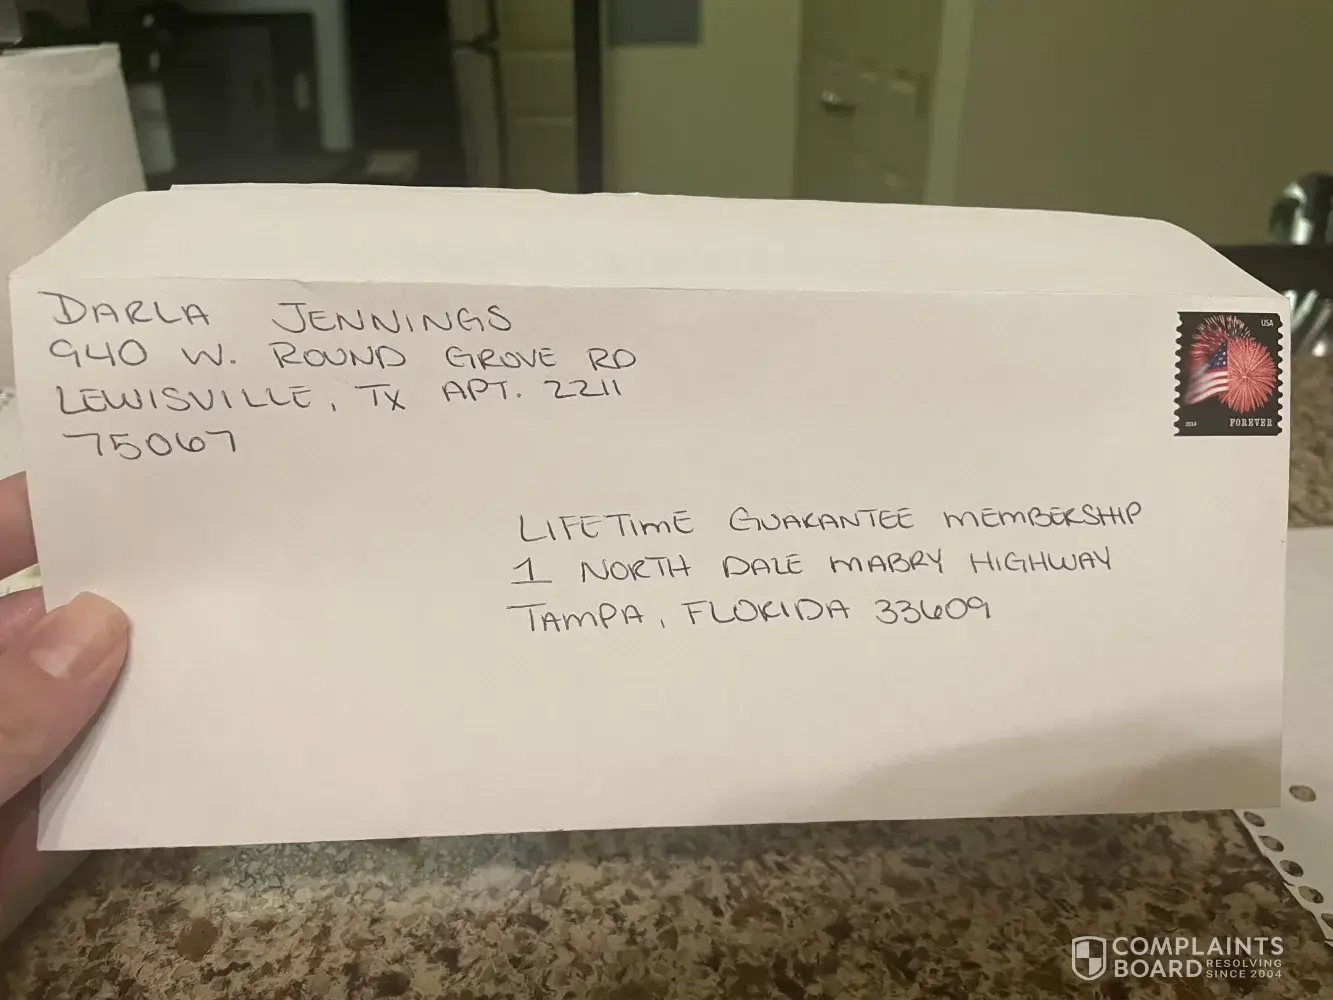 DARLA JENNINGS
940 W. ROUND GROVE RD
LEWISVILLE, TX APT. 2211
75067
USA
2014 FOREVER
LIFETIME GUARANTEE MEMBERSHIP
1 NORTH DALE MABRY HIGHWAY
TAMPA, FLORIDA 33609
COMPLAINTS
BOARD RESOLVING
SINCE 2004